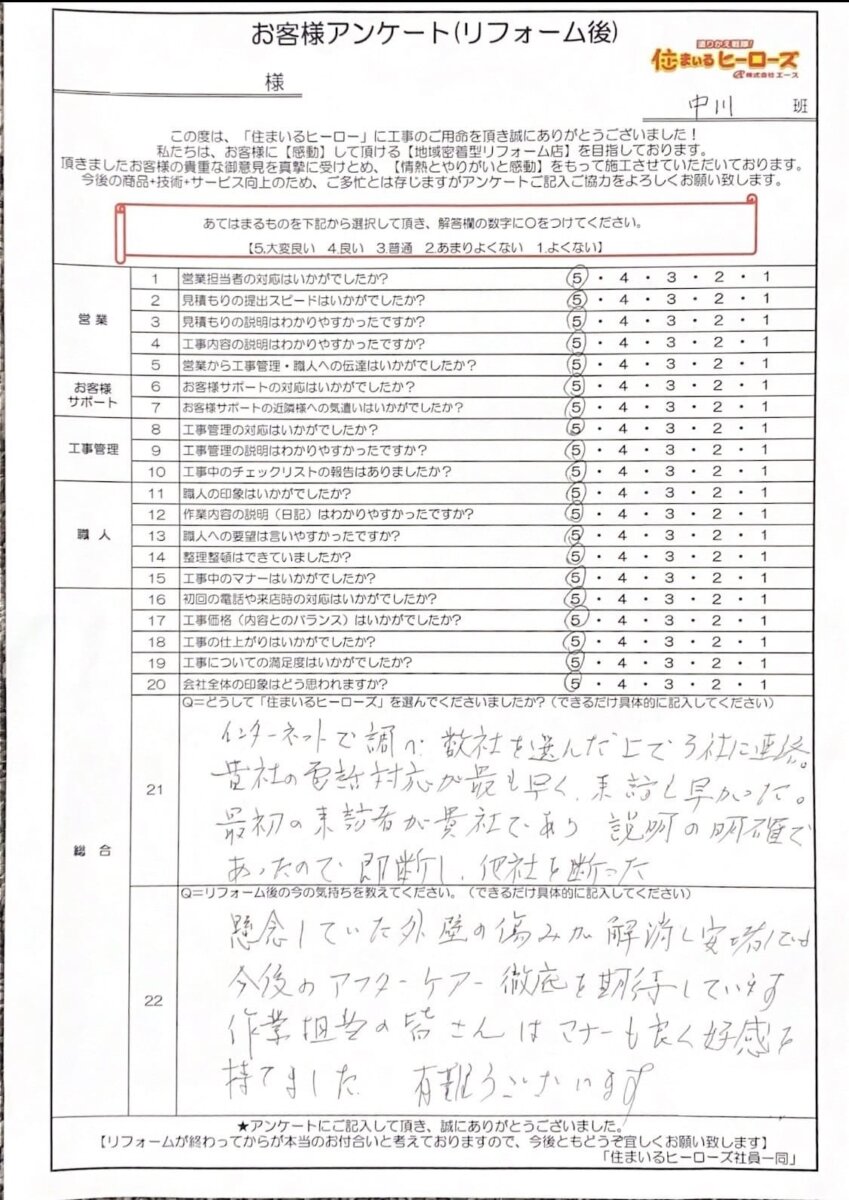 お客様アンケート(リフォーム後)
塗りかえ戦隊!
住まいるヒーローズ
株式会社エース
様
中川 班
この度は、「住まいるヒーロー」に工事のご用命を頂き誠にありがとうございました!
私たちは、お客様に【感動】して頂ける【地域密着型リフォーム店】を目指しております。
頂きましたお客様の貴重な御意見を真摯に受けとめ、【情熱とやりがいと感動】をもって施工させていただいております。
今後の商品+技術+サービス向上のため、ご多忙とは存じますがアンケートご記入ご協力をよろしくお願い致します。
あてはまるものを下記から選択して頂き、解答欄の数字に○をつけてください。
【5.大変良い 4.良い 3.普通 2.あまりよくない 1.よくない】
営業
1 営業担当者の対応はいかがでしたか? 5・4・3・2・1
2 見積もりの提出スピードはいかがでしたか? 5・4・3・2・1
3 見積もりの説明はわかりやすかったですか? 5・4・3・2・1
4 工事内容の説明はわかりやすかったですか? 5・4・3・2・1
5 営業から工事管理・職人への伝達はいかがでしたか? 5・4・3・2・1
お客様
サポート
6 お客様サポートの対応はいかがでしたか? 5・4・3・2・1
7 お客様サポートの近隣様への気遣いはいかがでしたか? 5・4・3・2・1
工事管理
8 工事管理の対応はいかがでしたか? 5・4・3・2・1
9 工事管理の説明はわかりやすかったですか? 5・4・3・2・1
10 工事中のチェックリストの報告はありましたか? 5・4・3・2・1
職人
11 職人の印象はいかがでしたか? 5・4・3・2・1
12 作業内容の説明(日記)はわかりやすかったですか? 5・4・3・2・1
13 職人への要望は言いやすかったですか? 5・4・3・2・1
14 整理整頓はできていましたか? 5・4・3・2・1
15 工事中のマナーはいかがでしたか? 5・4・3・2・1
総合
16 初回の電話や来店時の対応はいかがでしたか? 5・4・3・2・1
17 工事価格(内容とのバランス)はいかがでしたか? 5・4・3・2・1
18 工事の仕上がりはいかがでしたか? 5・4・3・2・1
19 工事についての満足度はいかがでしたか? 5・4・3・2・1
20 会社全体の印象はどう思われますか? 5・4・3・2・1
21 Q=どうして「住まいるヒーローズ」を選んでくださいましたか?(できるだけ具体的に記入してください)
インターネットで調べ 数社を選んだ上で3社に連絡。
貴社の電話対応が最も早く、来訪も早かった。
最初の来訪者が貴社であり 説明の明確で
あったので 即断し、他社を断った
22 Q=リフォーム後の今の気持ちを教えてください。(できるだけ具体的に記入してください)
懸念していた外壁の傷みが解消し安堵してます
今後のアフターケアー徹底を期待しています
作業担当の皆さんはマナーも良く好感を
持てました 有難うございます
★アンケートにご記入して頂き、誠にありがとうございました。
【リフォームが終わってからが本当のお付合いと考えておりますので、今後ともどうぞ宜しくお願い致します】
「住まいるヒーローズ社員一同」